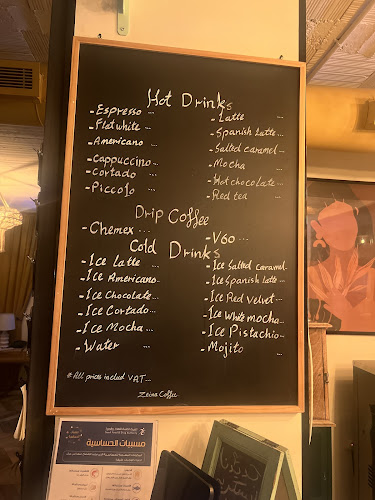 Hot Drinks
- Espresso ...
- Flat white ...
- Americano ...
- Cappuccino ...
- Cortado ...
- Piccolo ...
- Latte ...
- Spanish Latte ...
- Salted caramel ...
- Mocha ...
- Hot chocolate ...
- Red tea ...
Drip Coffee
- Chemex ...
- V60 ...
Cold Drinks
- Ice Latte ...
- Ice Americano ...
- Ice Chocolate ...
- Ice Cortado ...
- Ice Mocha ...
- Water ...
- Ice Salted caramel
- Ice Spanish latte ...
- Ice Red Velvet ...
- Ice White mocha ...
- Ice Pistachio ...
- Mojito ...
* All prices includ VAT ...
Zeina Coffee
مسببات الحساسية